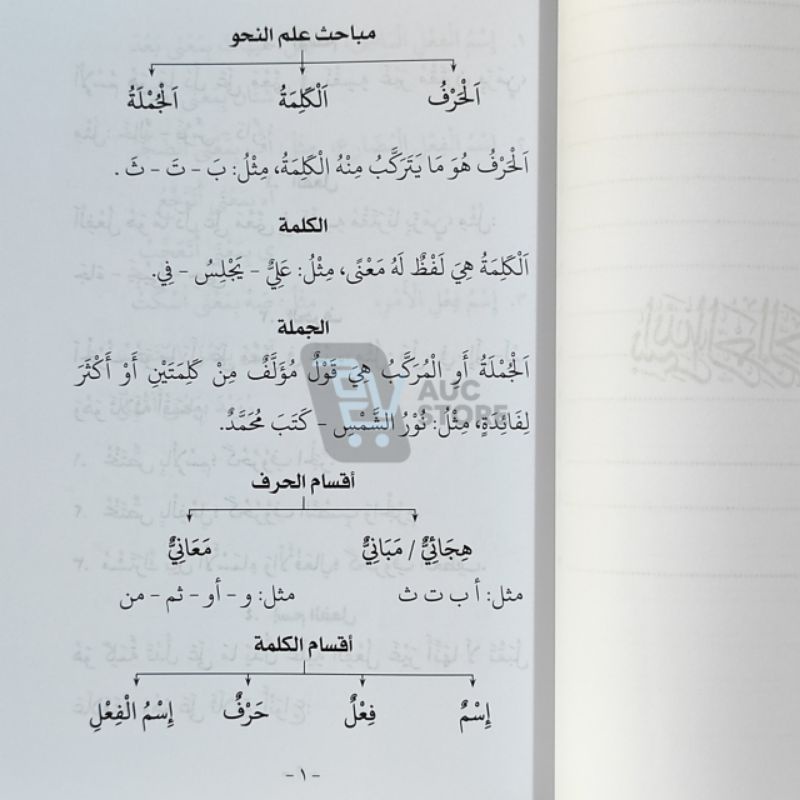 مباحث علم النحو
اَلْحَرْفُ اَلْكَلِمَةُ اَلْجُمْلَةُ
اَلْحَرْفُ هُوَ مَا يَتَرَكَّبُ مِنْهُ الْكَلِمَةُ، مِثْلُ: بَ - تَ - ثَ .
الكلمة
اَلْكَلِمَةُ هِيَ لَفْظٌ لَهُ مَعْنًى، مِثْلُ: عَلِيٌّ - يَجْلِسُ - فِي.
الجملة
اَلْجُمْلَةُ أَوِ الْمُرَكَّبُ هِيَ قَوْلٌ مُؤَلَّفٌ مِنْ كَلِمَتَيْنِ أَوْ أَكْثَرَ
لِفَائِدَةٍ، مِثْلُ: نُوْرُ الشَّمْسِ - كَتَبَ مُحَمَّدٌ.
AUC
STORE
أقسام الحرف
هِجَائِيٌّ / مَبَانِيٌّ مَعَانِيٌّ
مثل: أ ب ت ث مثل: و - أو - ثم - من
أقسام الكلمة
إِسْمٌ فِعْلٌ حَرْفٌ إِسْمُ الْفِعْلِ
- ١ -